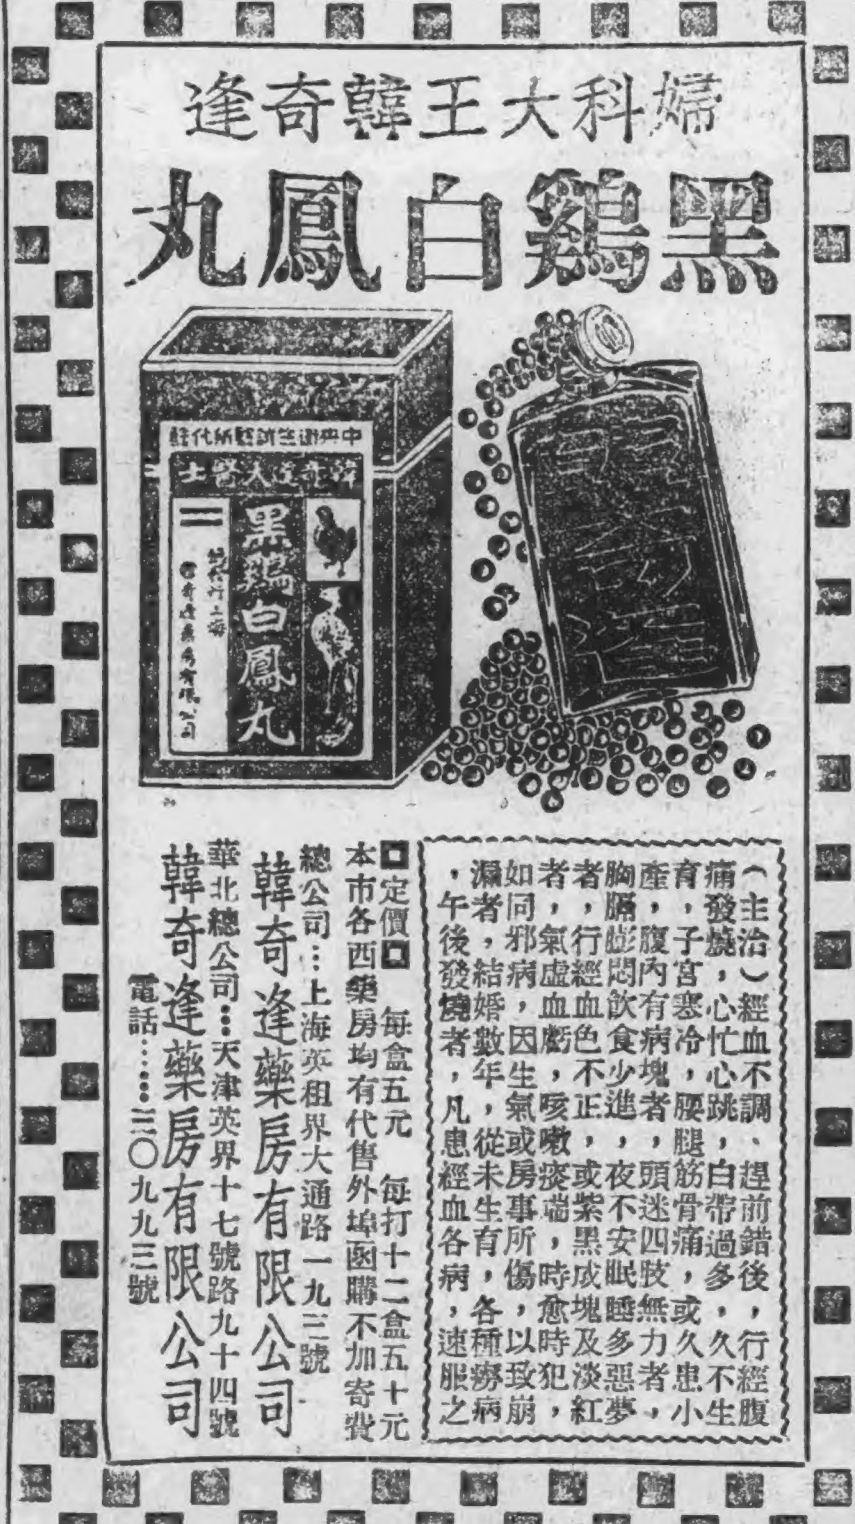 婦科大王韓奇逢
黑鷄白鳳丸
中央衛生試驗所代驗
韓奇逢大醫士
黑鷄白鳳丸
韓奇逢藥房有限公司
韓奇逢
（主治）經血不調、趕前錯後，行經腹
痛發燒，心忙心跳，白帶過多，久不生
育，子宮寒冷，腰腿筋骨痛，或久患小
產，腹內有病塊者，頭迷四肢無力者，
胸膈膨悶飲食少進，夜不安眠睡多惡夢
者，行經血色不正，或紫黑成塊及淡紅
者，氣虛血虧，咳嗽痰喘，時愈時犯，
如同邪病，因生氣或房事所傷，以致崩
漏者，結婚數年，從未生育，各種癆病
，午後發燒者，凡患經血各病，速服之
◘定價◘　每盒五元　每打十二盒五十元
本市各西藥房均有代售外埠函購不加寄費
總公司…上海英租界大通路一九三號
韓奇逢藥房有限公司
華北總公司…天津英界十七號路九十四號
韓奇逢藥房有限公司
電話……三〇九九三號